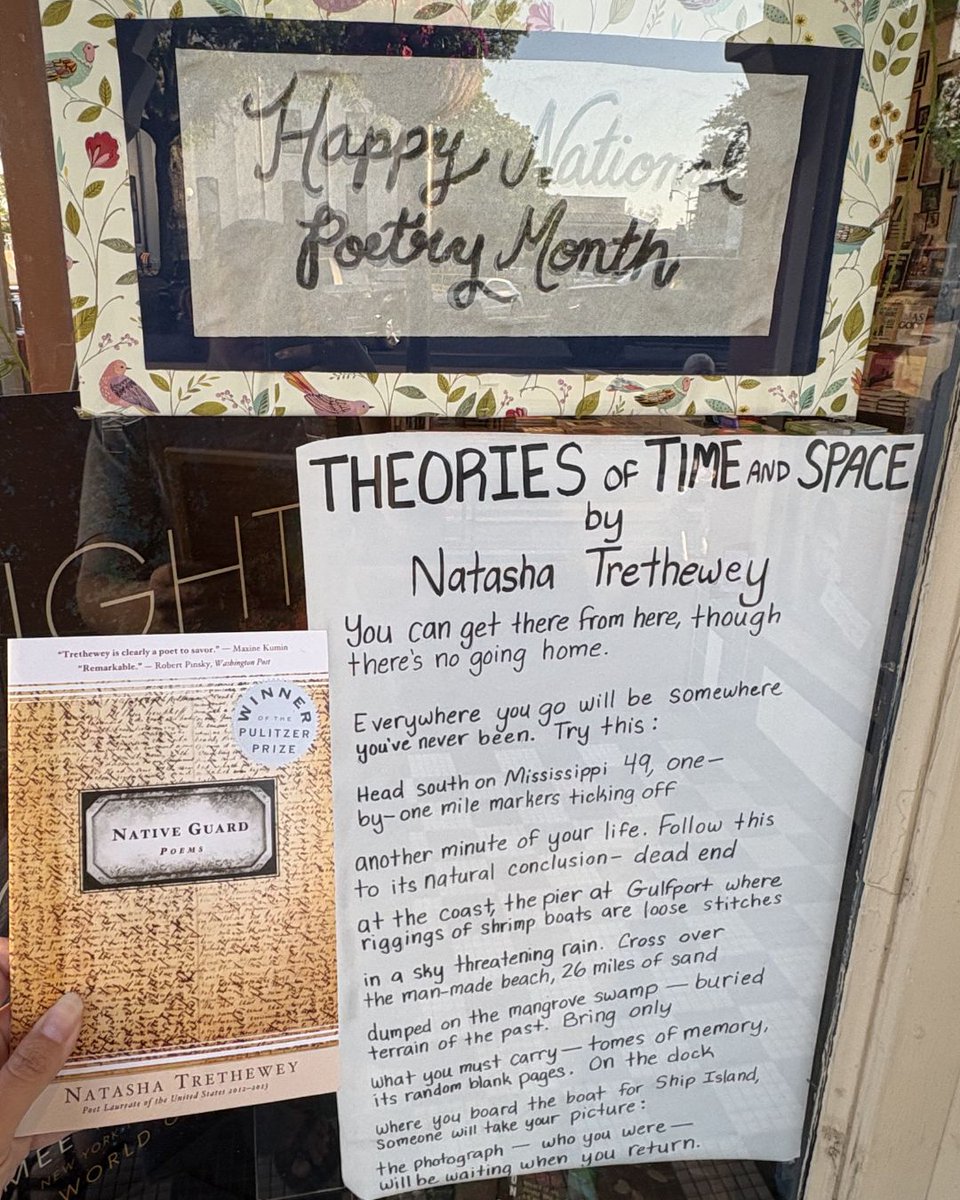 Happy National
Poetry Month
THEORIES OF TIME AND SPACE
by
Natasha Trethewey
You can get there from here, though
there's no going home.
Everywhere you go will be somewhere
you've never been. Try this:
Head south on Mississippi 49, one—
by—one mile markers ticking off
another minute of your life. Follow this
to its natural conclusion— dead end
at the coast, the pier at Gulfport where
riggings of shrimp boats are loose stitches
in a sky threatening rain. Cross over
the man-made beach, 26 miles of sand
dumped on the mangrove swamp — buried
terrain of the past. Bring only
what you must carry — tomes of memory,
its random blank pages. On the dock
where you board the boat for Ship Island,
someone will take your picture:
the photograph — who you were —
will be waiting when you return.
IGHT
"Trethewey is clearly a poet to savor." — Maxine Kumin
"Remarkable." — Robert Pinsky, Washington Post
WINNER
OF THE
PULITZER
PRIZE
NATIVE GUARD
POEMS
NATASHA TRETHEWEY
Poet Laureate of the United States 2012–2013
NEW YORK
WORLD